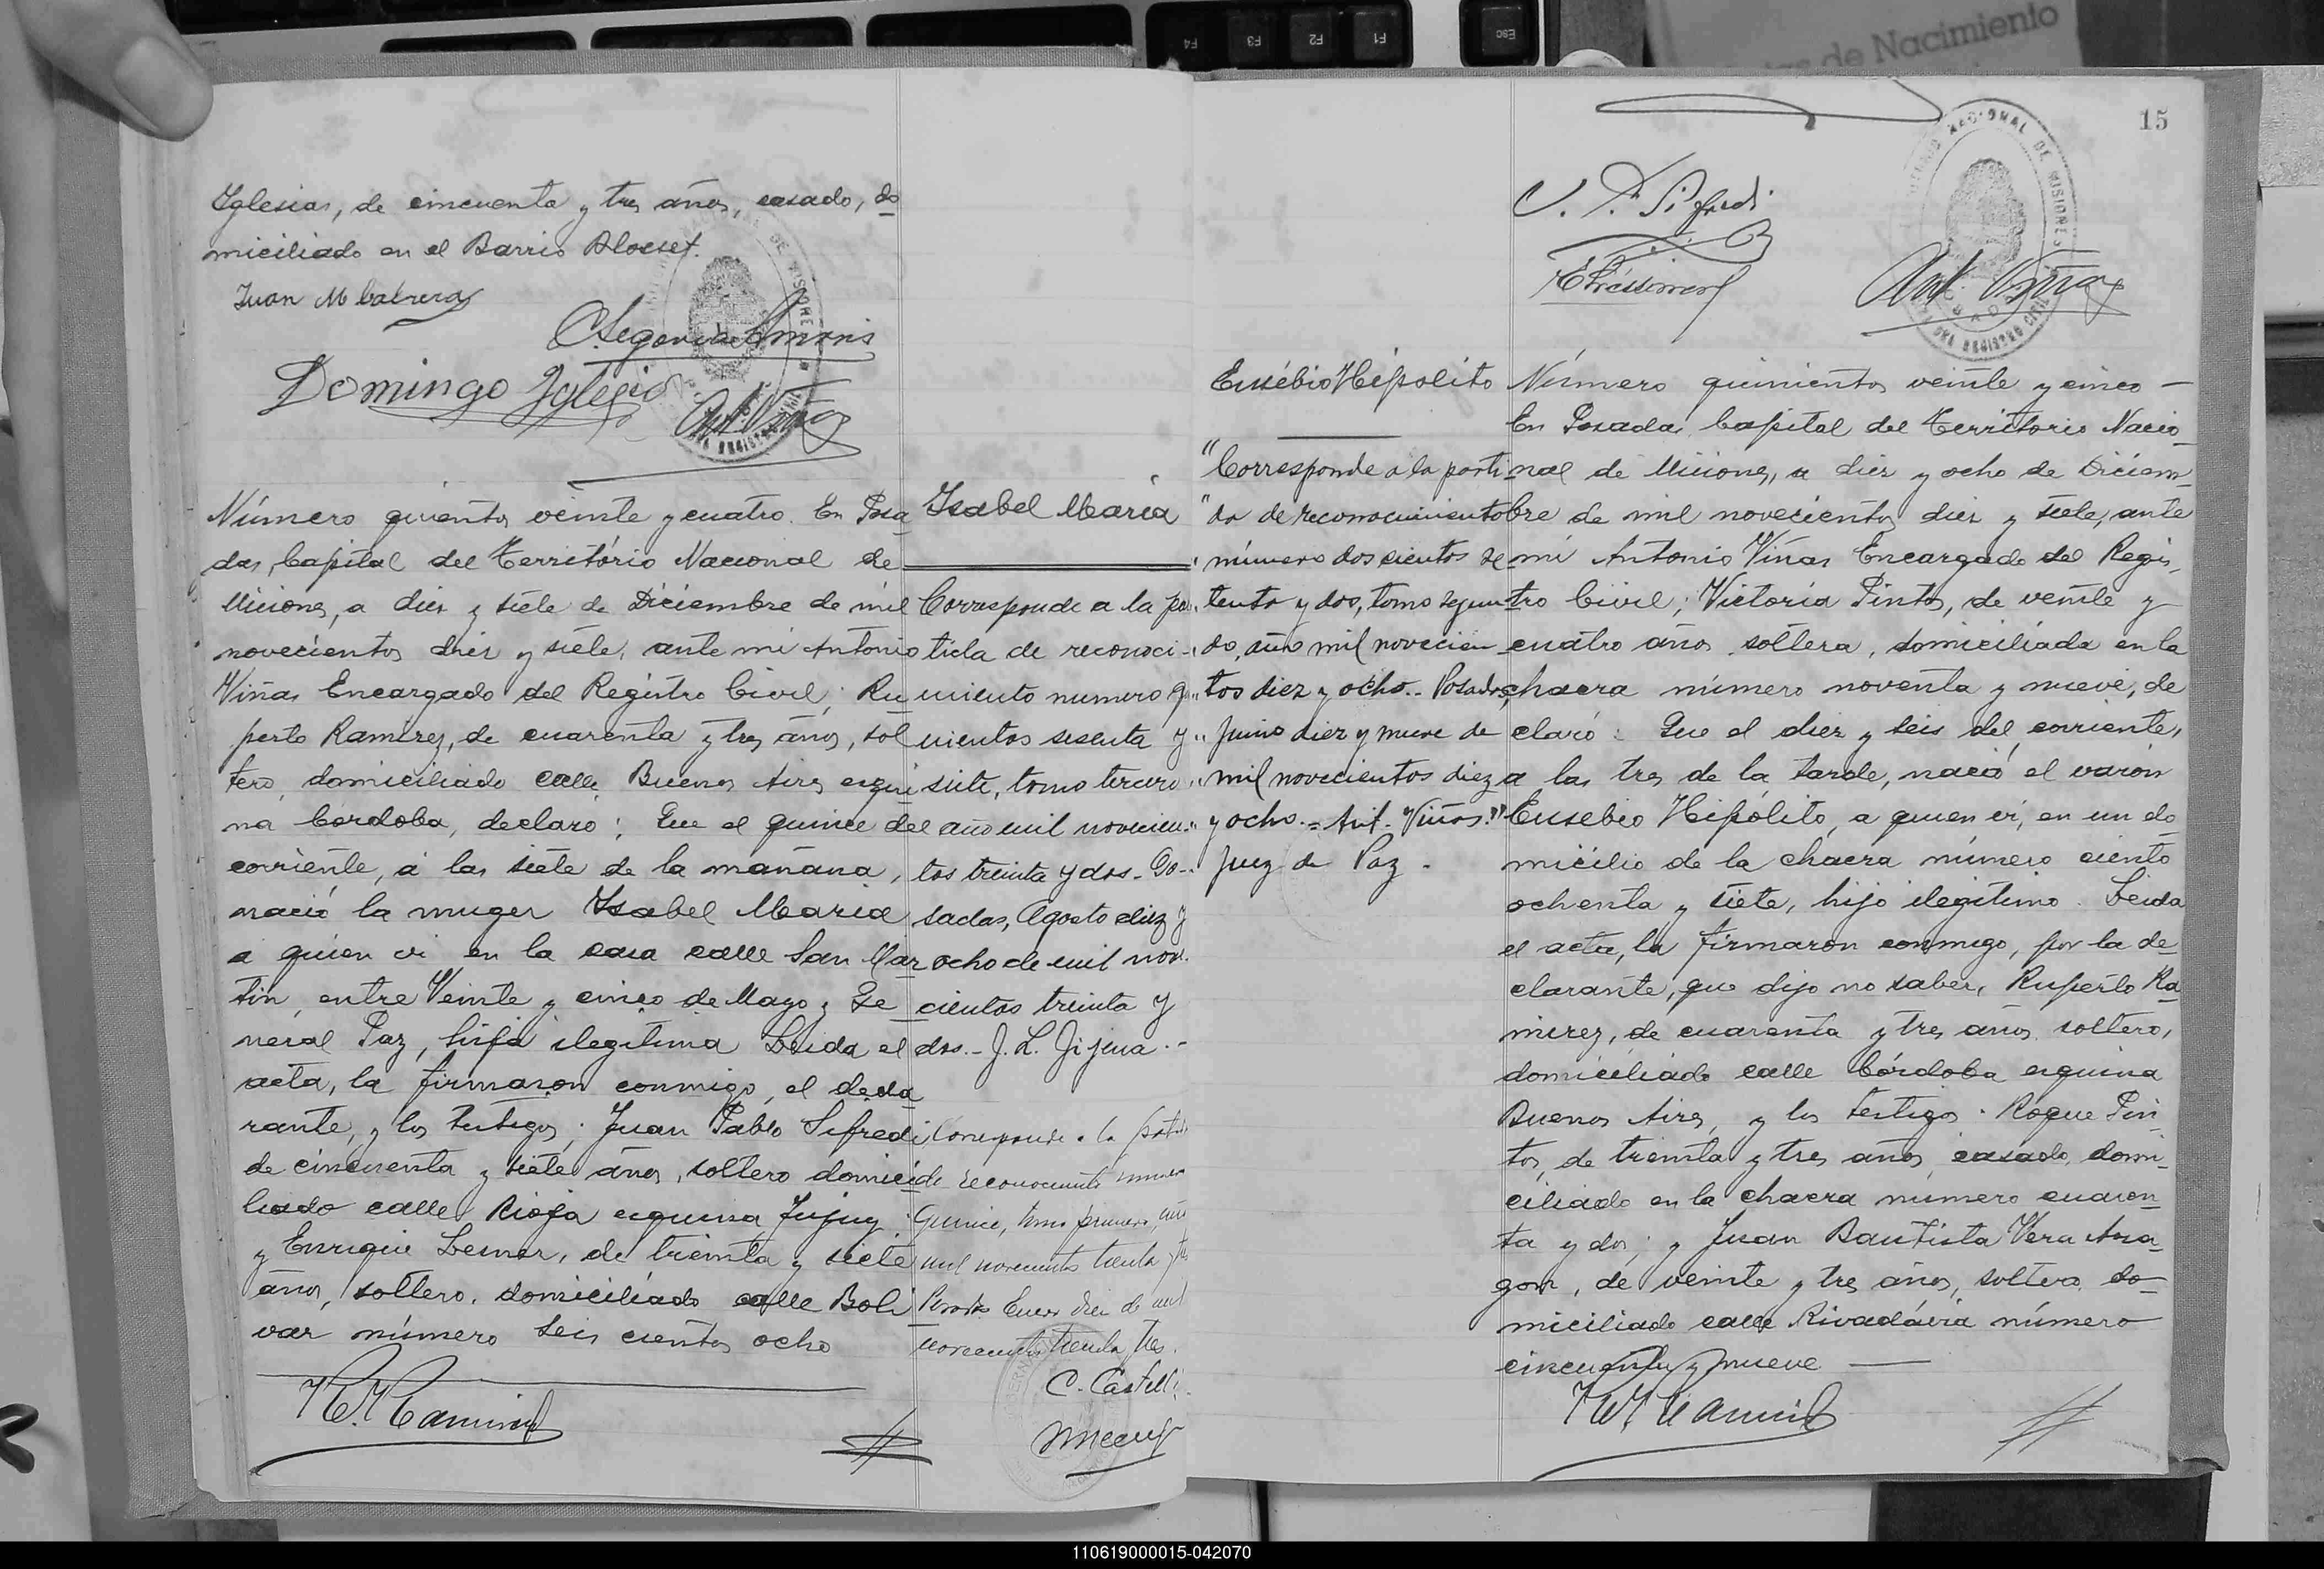 F4 F3 F2 F1 Esc
de Nacimiento
Iglesias, de cincuenta y tres años, casado, do
miciliado en el Barrio Blosset.
Juan M Cabrera
C. Segovia
Domingo Iglesia
Ant. Viñas
Número quientos veinte y cuatro. En Posa
das, Capital del Território Nacional de
Misiones, a diez y siete de Diciembre de mil
novecientos diez y siete, ante mi Antonio
Viñas Encargado del Registro Civil; Ru
perto Ramírez, de cuarenta y tres años, sol
tero, domiciliado calle Buenos Aires esqui
na Cordoba, declaro: Que el quince del
corriente, á las siete de la mañana,
nació la muger Isabel Maria
a quien vi en la casa calle San Mar
tin, entre Veinte y cinco de Mayo y Ge
neral Paz, hija ilegitima Leida el
acta, la firmaron conmigo, el decla
rante, y los testigos; Juan Pablo Sifredi
de cincuenta y siete años, soltero domici
liado calle Rioja esquina Jujuy
y Enrique Lesner, de treinta y siete
años, soltero, domiciliado calle Boli
var número seis cientos ocho
R. Ramirez
Isabel Maria
Corresponde a la par
tida de reconoci-
miento numero qui
nientos sesenta y
siete, tomo tercero
año mil novecien-
tos treinta y dos. Po-
sadas, Agosto diez y
ocho de mil nove
cientos treinta y
dos.- J. L. Jijena.-
Corresponde a la partida
de reconocimiento numero
Quince, tomo primero, año
mil novecientos treinta y tres
Posadas Enero diez de mil
novecientos treinta y tres.
C. Castelli
15
J. P. Sifredi
Ant. Viñas
Eusébio Hipolito
"Corresponde a la parti
"da de reconocimiento
"número dos cientos se
"tenta y dos, tomo segun
"do, año mil novecien
"tos diez y ocho.- Posadas,
"Junio diez y nueve de
"mil novecientos diez
"y ocho.= Ant. Viñas."
Juez de Paz.
Número quinientos veinte y cinco —
En Posadas, Capital del Territorio Nacio
nal de Misiones, a diez y ocho de Diciem
bre de mil novecientos diez y siete, ante
mi Antonio Viñas Encargado del Regis
tro Civil; Victoria Pintos, de veinte y
cuatro años soltera, domiciliada en la
chacra número noventa y nueve, de
claró: Que el diez y seis del corriente,
a las tres de la tarde, nació el varon
Eusebio Hipólito, a quien vi, en un do
micilio de la chacra número ciento
ochenta y siete, hijo ilegitimo. Leida
el acta, la firmaron conmigo, por la de
clarante, que dijo no saber, Ruperto Ra
mirez, de cuarenta y tres años soltero,
domiciliado calle Córdoba esquina
Buenos Aires, y los testigos: Roque Pin
tos, de treinta y tres años casado, domi
ciliado en la chacra número cuaren
ta y dos; y Juan Bautista Vera Ara
gon, de veinte y tres años, soltero do
miciliado calle Rivadávia número
cincuenta y nueve —
110619000015-042070